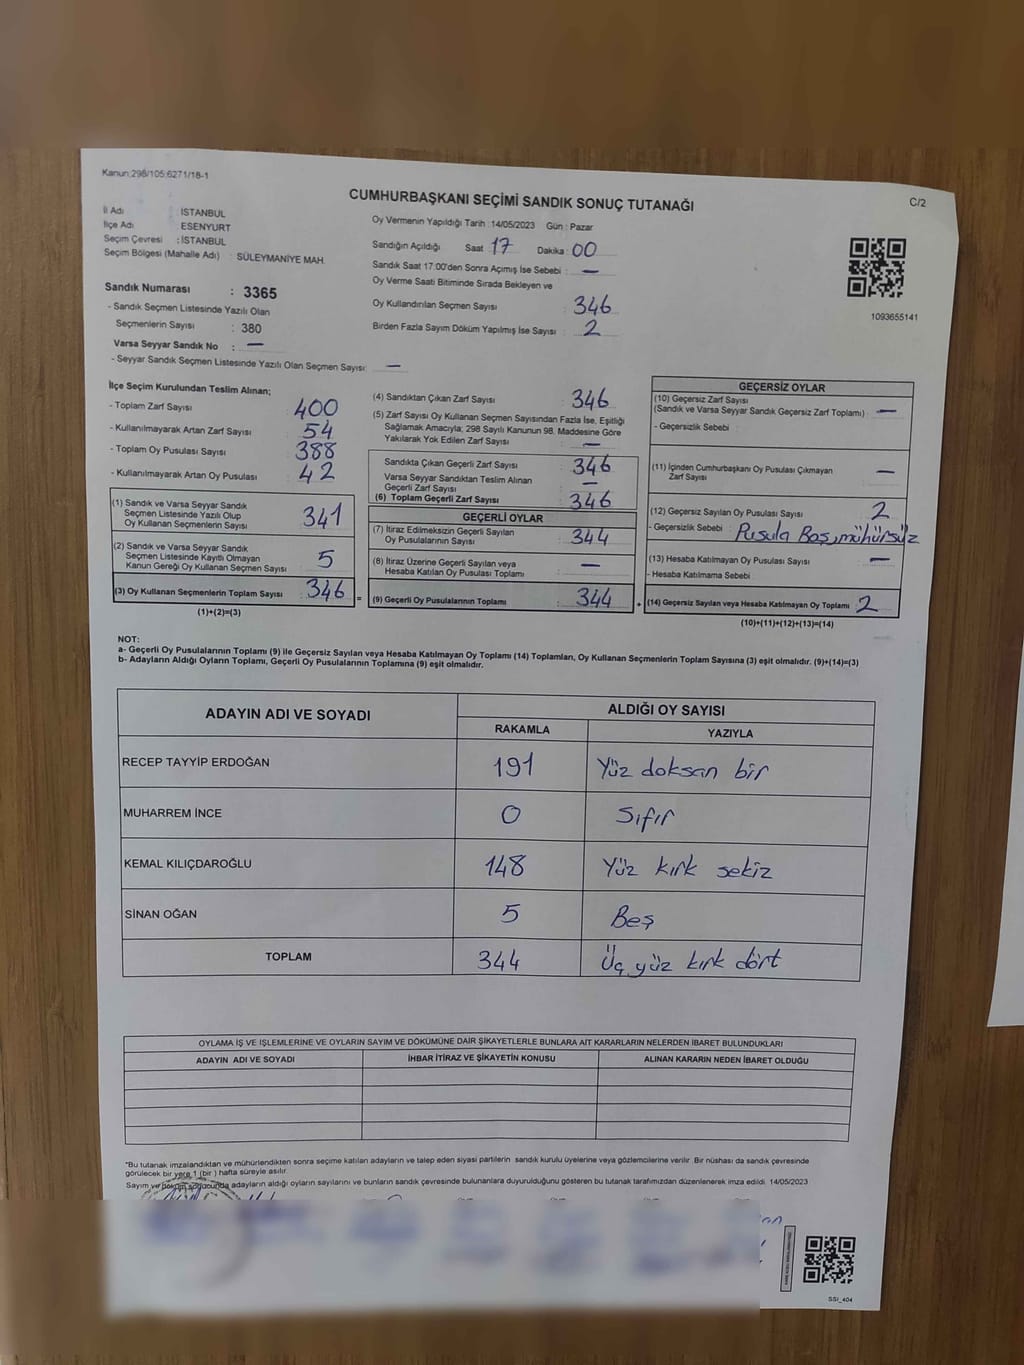 Kanun:298/105:6271/18-1
CUMHURBAŞKANI SEÇİMİ SANDIK SONUÇ TUTANAĞI
C/2
İl Adı : İSTANBUL
İlçe Adı : ESENYURT
Seçim Çevresi : İSTANBUL
Seçim Bölgesi (Mahalle Adı) : SÜLEYMANİYE MAH.
Sandık Numarası : 3365
- Sandık Seçmen Listesinde Yazılı Olan
Seçmenlerin Sayısı : 380
Varsa Seyyar Sandık No : —
- Seyyar Sandık Seçmen Listesinde Yazılı Olan Seçmen Sayısı: —
Oy Vermenin Yapıldığı Tarih :14/05/2023 Gün : Pazar
Sandığın Açıldığı Saat 17 Dakika : 00
Sandık Saat 17:00'den Sonra Açımış İse Sebebi : —
Oy Verme Saati Bitiminde Sırada Bekleyen ve
Oy Kullandırılan Seçmen Sayısı : 346
Birden Fazla Sayım Döküm Yapılmış İse Sayısı : 2
1093655141
İlçe Seçim Kurulundan Teslim Alınan;
- Toplam Zarf Sayısı : 400
- Kullanılmayarak Artan Zarf Sayısı : 54
- Toplam Oy Pusulası Sayısı : 388
- Kullanılmayarak Artan Oy Pusulası : 42
(1) Sandık ve Varsa Seyyar Sandık
Seçmen Listesinde Yazılı Olup
Oy Kullanan Seçmenlerin Sayısı : 341
(2) Sandık ve Varsa Seyyar Sandık
Seçmen Listesinde Kayıtlı Olmayan
Kanun Gereği Oy Kullanan Seçmen Sayısı : 5
(3) Oy Kullanan Seçmenlerin Toplam Sayısı : 346
(1)+(2)=(3)
(4) Sandıktan Çıkan Zarf Sayısı : 346
(5) Zarf Sayısı Oy Kullanan Seçmen Sayısından Fazla İse, Eşitliği
Sağlamak Amacıyla; 298 Sayılı Kanunun 98. Maddesine Göre
Yakılarak Yok Edilen Zarf Sayısı : —
Sandıkta Çıkan Geçerli Zarf Sayısı : 346
Varsa Seyyar Sandıktan Teslim Alınan
Geçerli Zarf Sayısı : —
(6) Toplam Geçerli Zarf Sayısı : 346
GEÇERLİ OYLAR
(7) İtiraz Edilmeksizin Geçerli Sayılan
Oy Pusulalarının Sayısı : 344
(8) İtiraz Üzerine Geçerli Sayılan veya
Hesaba Katılan Oy Pusulası Toplamı : —
=
(9) Geçerli Oy Pusulalarının Toplamı : 344
+
GEÇERSİZ OYLAR
(10) Geçersiz Zarf Sayısı
(Sandık ve Varsa Seyyar Sandık Geçersiz Zarf Toplamı) : —
- Geçersizlik Sebebi :
(11) İçinden Cumhurbaşkanı Oy Pusulası Çıkmayan
Zarf Sayısı : —
(12) Geçersiz Sayılan Oy Pusulası Sayısı : 2
- Geçersizlik Sebebi : Pusula Boş,mühürsüz
(13) Hesaba Katılmayan Oy Pusulası Sayısı : —
- Hesaba Katılmama Sebebi
(14) Geçersiz Sayılan veya Hesaba Katılmayan Oy Toplamı : 2
(10)+(11)+(12)+(13)=(14)
NOT:
a- Geçerli Oy Pusulalarının Toplamı (9) ile Geçersiz Sayılan veya Hesaba Katılmayan Oy Toplamı (14) Toplamları, Oy Kullanan Seçmenlerin Toplam Sayısına (3) eşit olmalıdır. (9)+(14)=(3)
b- Adayların Aldığı Oyların Toplamı, Geçerli Oy Pusulalarının Toplamına (9) eşit olmalıdır.
ADAYIN ADI VE SOYADI ALDIĞI OY SAYISI
RAKAMLA YAZIYLA
RECEP TAYYİP ERDOĞAN 191 Yüz doksan bir
MUHARREM İNCE 0 Sıfır
KEMAL KILIÇDAROĞLU 148 Yüz kırk sekiz
SİNAN OĞAN 5 Beş
TOPLAM 344 Üç yüz kırk dört
OYLAMA İŞ VE İŞLEMLERİNE VE OYLARIN SAYIM VE DÖKÜMÜNE DAİR ŞİKAYETLERLE BUNLARA AİT KARARLARIN NELERDEN İBARET BULUNDUKLARI
ADAYIN ADI VE SOYADI İHBAR İTİRAZ VE ŞİKAYETİN KONUSU ALINAN KARARIN NEDEN İBARET OLDUĞU
*Bu tutanak imzalandıktan ve mühürlendikten sonra seçime katılan adayların ve talep eden siyasi partilerin sandık kurulu üyelerine veya gözlemcilerine verilir. Bir nüshası da sandık çevresinde
görülecek bir yere 1 (bir ) hafta süreyle asılır.
Sayım ve döküm sonucunda adayların aldığı oyların sayılarını ve bunların sandık çevresinde bulunanlara duyurulduğunu gösteren bu tutanak tarafımızdan düzenlenerek imza edildi. 14/05/2023
SSI_404